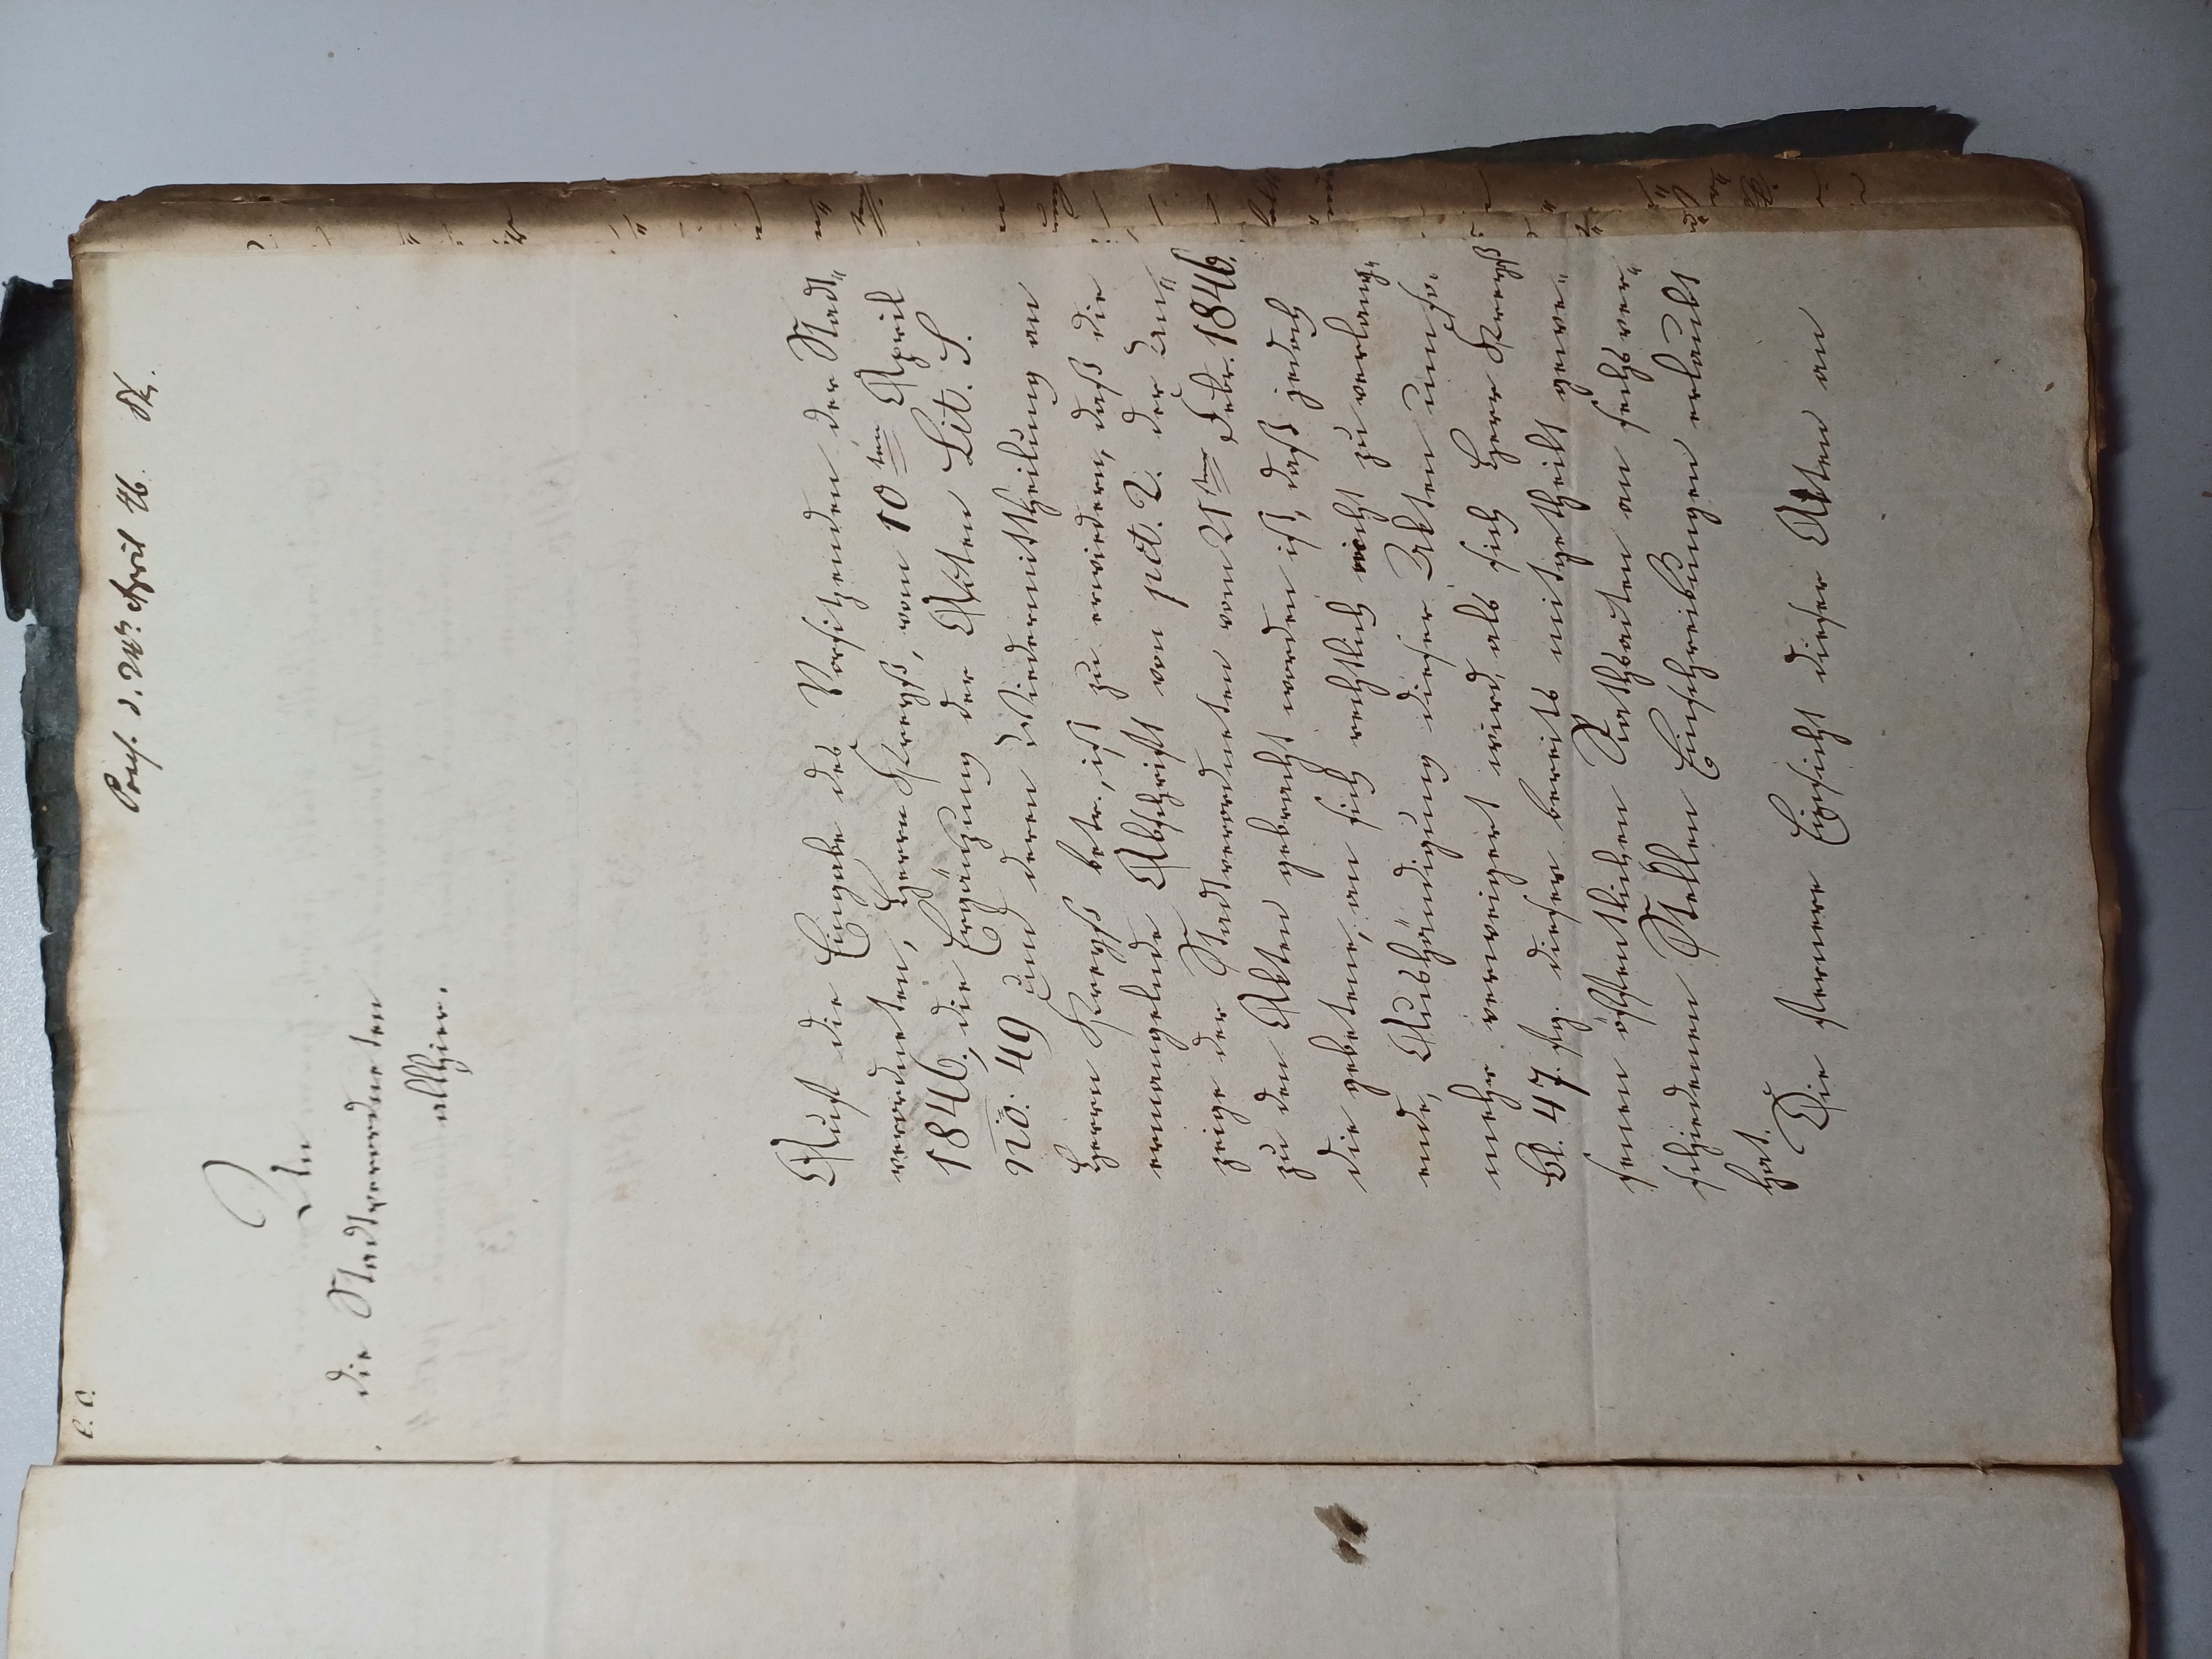 E. O.
Pras. d. 24n April 46. St.
An
die Stadtverordneten
allhier.
Auf die Eingabe des Vorsitzenden der Stadt„
verordneten, Herrn Kreyß, vom 10ten April
1846., die Ergänzung der Akten Lit. S.
No. 49 und deren Wiedermittheilung an
Herrn Kreyß betr., ist zu erwiedern, daß die
ermangelnde Abschrift von pct. 2. der An„
zeige der Stadtverordneten vom 21sten Febr. 1846.
zu den Akten gebracht worden ist, daß jedoch
die gebetene, an sich rechtlich nicht zu verlang„
ende, Aushändigung dieser Akten umso„
mehr verweigert wird, als sich Herr Kreyß
Bl. 47. fg. dieser bereits mitgetheilt gewe„
senen öffentlichen Rathsacten an sechs ver„
schiedenen Stellen Einschreibungen erlaubt
hat.
Die fernere Einsicht dieser Akten an